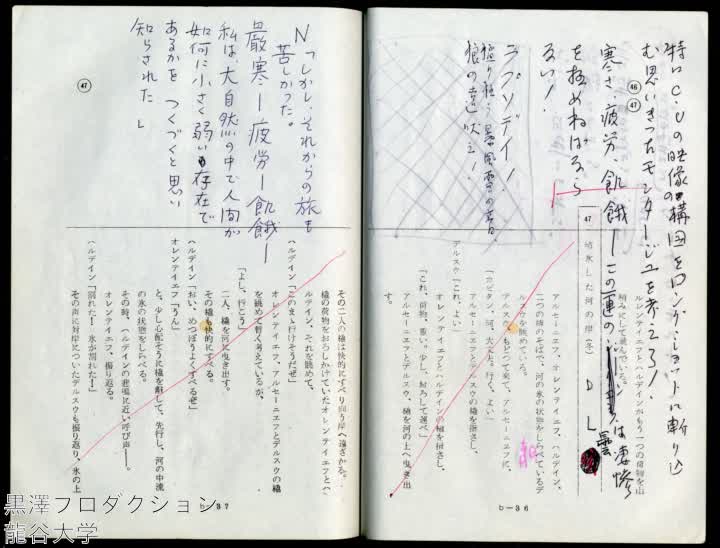 特にC.Uの映像の構図をロング・ショットに斬り込
む思いきったモンタージュを考えろ！
㊻
㊼
寒さ、疲労、飢餓ーこの一連の
は凄惨
を極めねばなら
ない！
D L
曇
ラプソディ！
猛り狂う暴風雪の音、
狼の遠吠え！
積みにして並んでいる。
アルセーニエフとハルディンがもう一つの荷物を山
47 結氷した河の岸（冬）
アルセーニエフ、オレンティエフ、ハルディン、
二つの橇のそばで、河の氷の状態をしらべているデ
ルスウを眺めている。
デルスウ、もどって来て、アルセーニエフに、
「カピタン、河、大丈夫。行く、よい」
アルセーニエフとデルスウの橇を指さし、
オレンティエフとハルディンの橇を指さし、
「これ、荷物、重い。少し、おろして運べ」
デルスウ「これ、よい」
アルセーニエフとデルスウ、橇を河の上へ曳き出
す。
b－36
㊼
N「しかし、それからの旅も
苦しかった。
厳寒ー疲労ー飢餓ー
私は、大自然の中で人間が
如何に小さく弱い存在で
あるかを つくづくと思い
知らされた」
その二人の橇は快的にすべり向う岸へ遠ざかる。
橇の荷物をおろしかけていたオレンティエフとハ
ルディン、それを眺めて、
ハルディン「このまゝ行けそうだぜ」
オレンティエフ、アルセーニエフとデルスウの橇
を眺めて暫く考えているが、
「よし、行こう」
二人、橇を河に曳き出す。
その橇も快的にすべる。
ハルディン「おい、めっぽうよくすべるぜ」
オレンティエフ「うん」
と、少し心配そうに橇を離して、先行し、河の中流
の氷の状態をしらべる。
その時、ハルディンの悲鳴に近い呼び声――。
オレンティエフ、振り返る。
ハルディン「割れた！ 氷が割れた！」
その声に対岸についたデルスウも振り返り、氷の上
b－37
黒澤プロダクション
龍谷大学